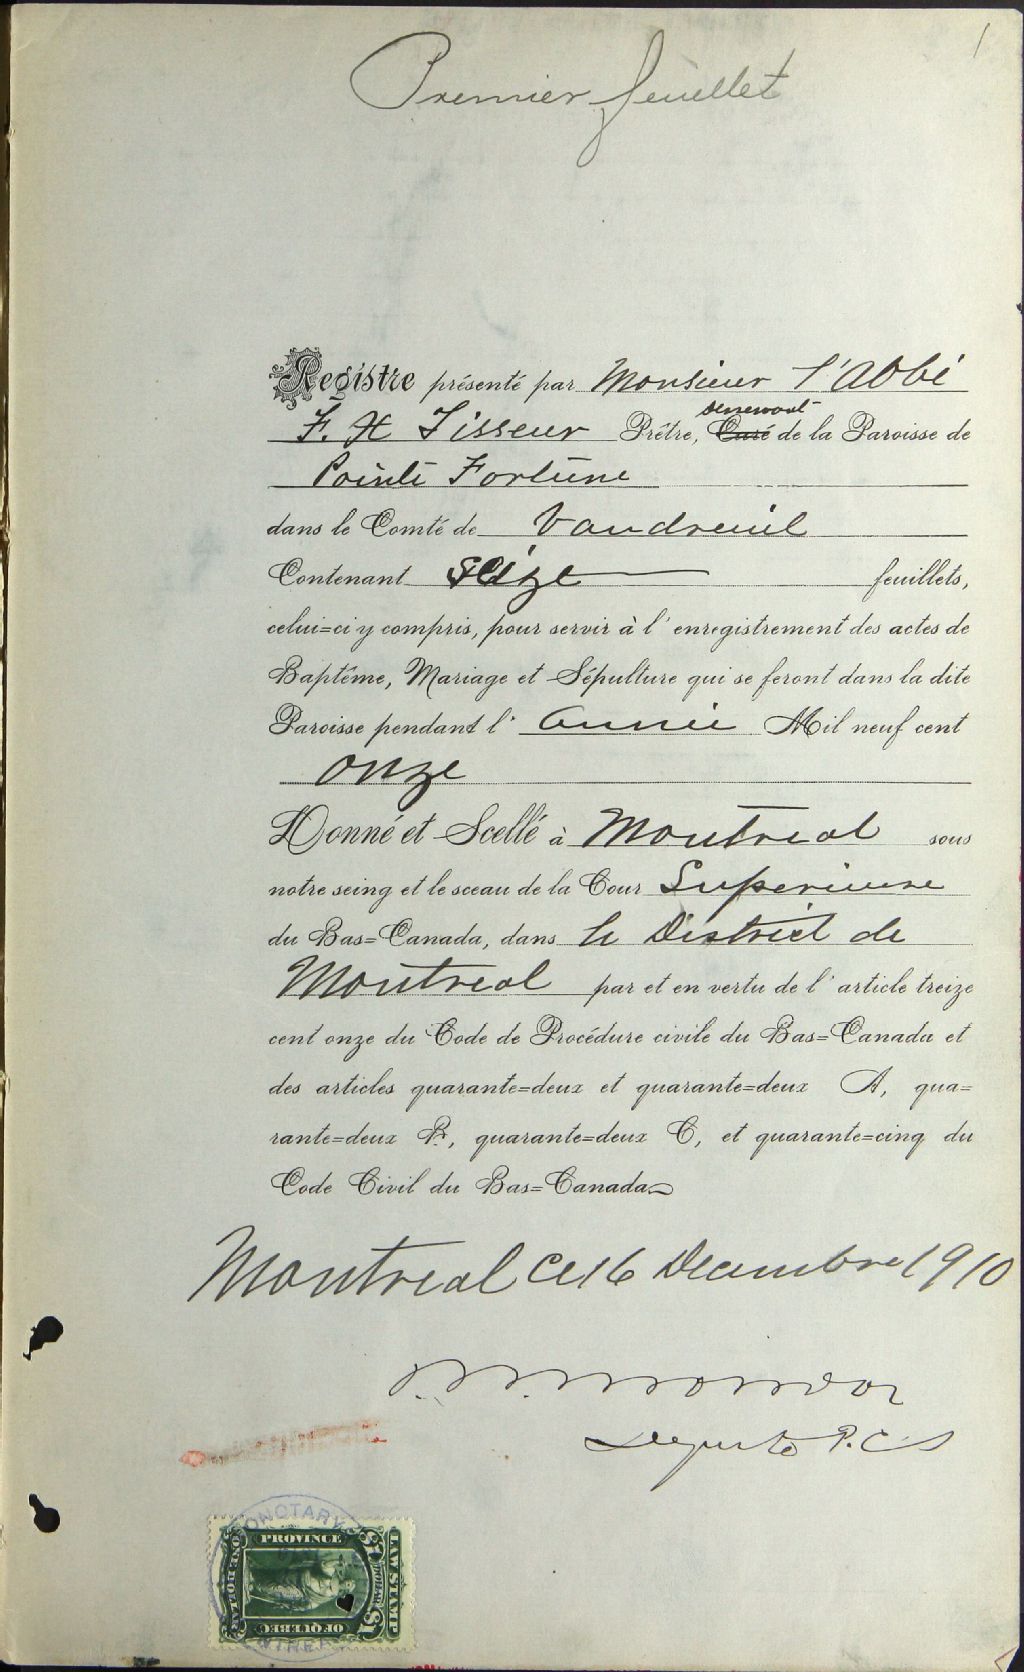 1
Premier feuillet
Registre présenté par Monsieur l'Abbé
desservant
F. X Tisseur Prêtre, Curé de la Paroisse de
Pointe Fortune
dans le Comté de Vaudreuil
Contenant seize feuillets,
celui=ci y compris, pour servir à l'enregistrement des actes de
Baptême, Mariage et Sépulture qui se feront dans la dite
Paroisse pendant l'année Mil neuf cent
onze
Donné et Scellé à Montreal sous
notre seing et le sceau de la Cour Superieure
du Bas=Canada, dans le District de
Montreal par et en vertu de l'article treize
cent onze du Code de Procédure civile du Bas=Canada et
des articles quarante=deux et quarante=deux A, qua=
rante=deux B, quarante=deux C, et quarante=cinq du
Code Civil du Bas=Canada
Montreal Ce 16 Decembre 1910
Deputé P.C.S
PROVINCE
OF QUEBEC
LAW STAMP
ONE DOLLAR
$1